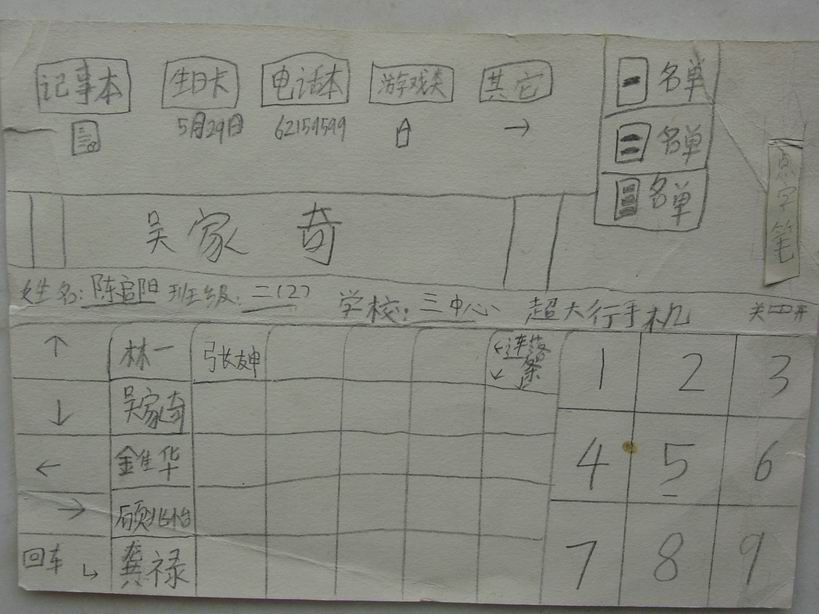 记事本 生日卡 电话本 游戏类 其它
5月29日 62159599 →
一 名单
二 名单
三 名单
点字笔
吴家奇
姓名:陈启阳 班级:二(2) 学校:三中心 超大行手机 关 开
↑ 林一 张坤 1 2 3
↓ 吴家奇
← 金佳华 4 5 6
→ 顾兆怡
回车 龚禄 7 8 9